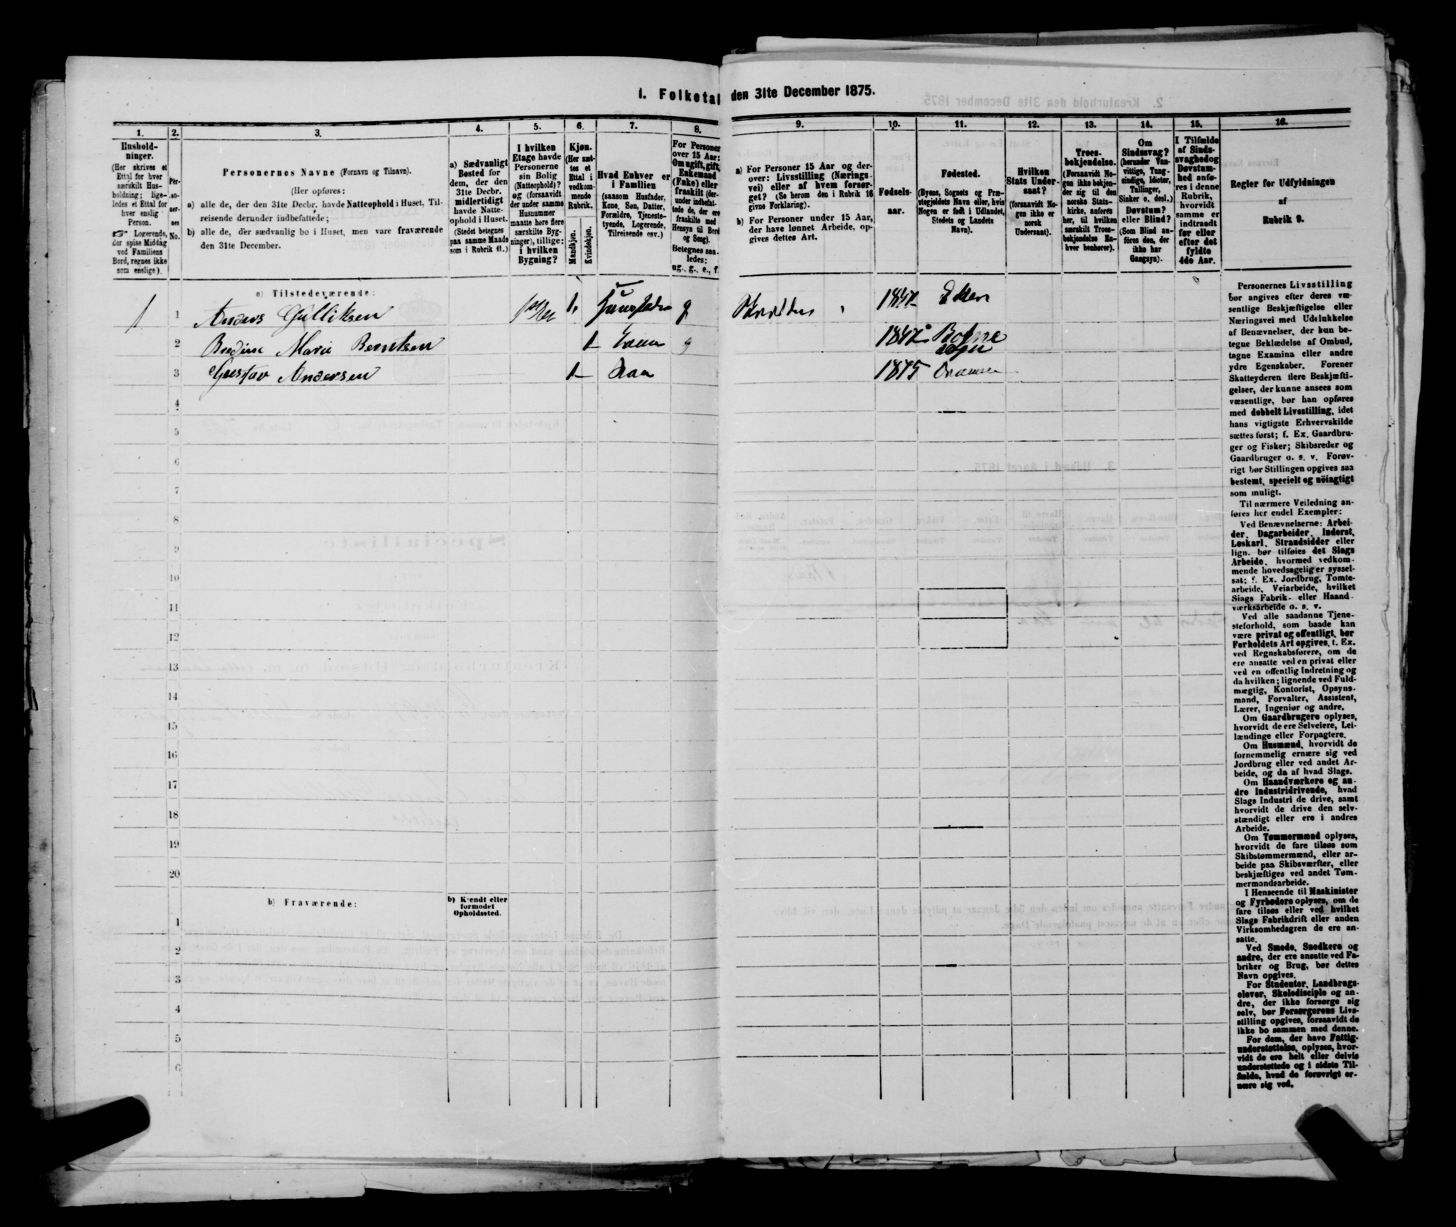 1. Folketal den 31te December 1875.
1.
2.
3.
4.
5.
6.
7.
8.
9.
10.
11.
12.
13.
14.
15.
16.
Hushold-
ninger.
(Her skrives et
Ettal for hver
særskilt Hus-
holdning; lige-
ledes et Ettal for
hver enslig
Person.
☞ Logerende,
der spise Middag
ved Familiens
Bord, regnes ikke
som enslige).
Per-
soner-
nes
No.
Personernes Navne (Fornavn og Tilnavn).
(Her opføres:
a) alle de, der den 31te Decbr. havde Natteophold i Huset, Til-
reisende derunder indbefattede;
b) alle de, der sædvanlig bo i Huset, men vare fraværende
den 31te December.
a) Sædvanligt
Bosted for
dem, der den
31te Decbr.
midlertidigt
havde Natte-
ophold i Huset.
(Stedet betegnes
paa samme Maade
som i Rubrik 11.)
I hvilken
Etage havde
Personerne
sin Bolig
(Natteophold)?
og (forsaavidt
der under samme
Husnummer
maatte høre flere
særskilte Byg-
ninger), tillige:
i hvilken
Bygning?
Kjøn.
(Her sæt-
tes et
Ettal i
vedkom-
mende
Rubrik.)
Mandkjøn.
Kvindekjøn.
Hvad Enhver er
i Familien
(saasom Husfader,
Kone, Søn, Datter,
Forældre, Tjeneste-
tyende, Logerende,
Tilreisende osv.)
For Personer
over 15 Aar:
Om ugift, gift,
Enkemand
(Enke) eller
fraskilt (der-
under indbefat-
tede de, der ere
fraskilte med
Hensyn til Bord
og Seng).
Betegnes saa-
ledes:
ug., g., e., f.
a) For Personer 15 Aar og der-
over: Livsstilling (Nærings-
vei) eller af hvem forsør-
get? (Se herom den i Rubrik 16
givne Forklaring).
b) For Personer under 15 Aar,
der have lønnet Arbeide, op-
gives dettes Art.
Fødsels-
aar.
Fødested.
(Byens, Sognets og Præ-
stegjeldets Navn eller, hvis
Nogen er født i Udlandet,
Stedets og Landets
Navn).
Hvilken
Stats Under-
saat?
(forsaavidt No-
gen ikke er
norsk
Undersaat).
Troes-
bekjendelse.
(Forsaavidt No-
gen ikke bekjen-
der sig til den
norske Stats-
kirke, anføres
her, til hvilken
særskilt Troes-
bekjendelse En-
hver henhører).
Om
Sindssvag?
(herunder Van-
vittige, Tung-
sindige, Idioter,
Tullinger,
Sinker o. desl.)
Døvstum?
eller Blind?
(Som Blind an-
føres den, der
ikke har
Gangsyn).
I Tilfælde
af Sinds-
svaghed og
Døvstum-
hed anfø-
res i denne
Rubrik,
hvorvidt
samme er
indtraadt
før eller
efter det
fyldte
4de Aar.
Regler for Udfyldningen
af
Rubrik 9.
a) Tilstedeværende:
1 1 Anders Gulliksen 1 g 1842 Eker
2 Bredine Marie Berntsen 1 g 1842 Botne sogn
3 Gustav Andersen 1 1875 Drammen
4
5
6
7
8
9
10
11
12
13
14
15
16
17
18
19
20
b) Fraværende:
b) Kjendt eller
formodet
Opholdssted.
1
2
3
4
5
6
Personernes Livsstilling
bør angives efter deres væ-
sentlige Beskjæftigelse eller
Næringsvei med Udelukkelse
af Benævnelser, der kun be-
tegne Beklædelse af Ombud,
tagne Examina eller andre
ydre Egenskaber. Forener
Skatteyderen flere Beskjæfti-
gelser, der kunne ansees som
væsentlige, bør han opføres
med dobbelt Livsstilling, idet
hans vigtigste Erhvervskilde
sættes først; f. Ex. Gaardbru-
ger og Fisker; Skibsreder og
Gaardbruger o. s. v. Forøv-
rigt bør Stillingen opgives saa
bestemt, specielt og nöiagtigt
som muligt.
Til nærmere Veiledning an-
føres her endel Exempler:
Ved Benævnelserne: Arbei-
der, Dagarbeider, Inderst,
Løskarl, Strandsidder eller
lign. bør tilføies det Slags
Arbeide, hvormed vedkom-
mende hovedsagelig er syssel-
sat; f. Ex. Jordbrug, Tomte-
arbeide, Veiarbeide, hvilket
Slags Fabrik- eller Haand-
værksarbeide o. s. v.
Ved alle saadanne Tjene-
steforhold, som baade kan
være privat og offentligt, bør
Forholdets Art opgives, f. Ex.
ved Regnskabsførere, om de
ere ansatte ved en privat eller
ved en offentlig Indretning og
da hvilken; lignende ved Fuld-
mægtig, Kontorist, Opsyns-
mand, Forvalter, Assistent,
Lærer, Ingeniør og andre.
Om Gaardbrugere oplyses,
hvorvidt de ere Selveiere, Lei-
lændinge eller Forpagtere.
Om Husmænd, hvorvidt de
fornemmelig ernære sig ved
Jordbrug eller ved andet Ar-
beide, og da af hvad Slags.
Om Haandværkere og an-
dre Industridrivende, hvad
Slags Industri de drive, samt
hvorvidt de drive den selv-
stændigt eller ere i andres
Arbeide.
Om Tømmermænd oplyses,
hvorvidt de fare tilsøs som
Skibstømmermænd, eller ar-
beide paa Skibsværfter, eller
beskjæftiges ved andet Tøm-
mermandsarbeide.
I Henseende til Maskinister
og Fyrbødere oplyses, om de
fare tilsøs eller ved hvilket
Slags Fabrikdrift eller anden
Virksomhedsgren de ere an-
satte.
Ved Smede, Snedkere og
andre, der ere ansatte ved Fa-
briker og Brug, bør dettes
Navn opgives.
For Studenter, Landbrugs-
elever, Skoledisciple og an-
dre, der ikke forsørge sig
selv, bør Forsørgerens Livs-
stilling opgives, forsaavidt de
ikke bo sammen med denne.
For dem, der have Fattig-
understøttelse, oplyses, hvor-
vidt de ere helt eller delvis
understøttede og i sidste Til-
fælde, hvad de forøvrigt er-
nære sig ved.